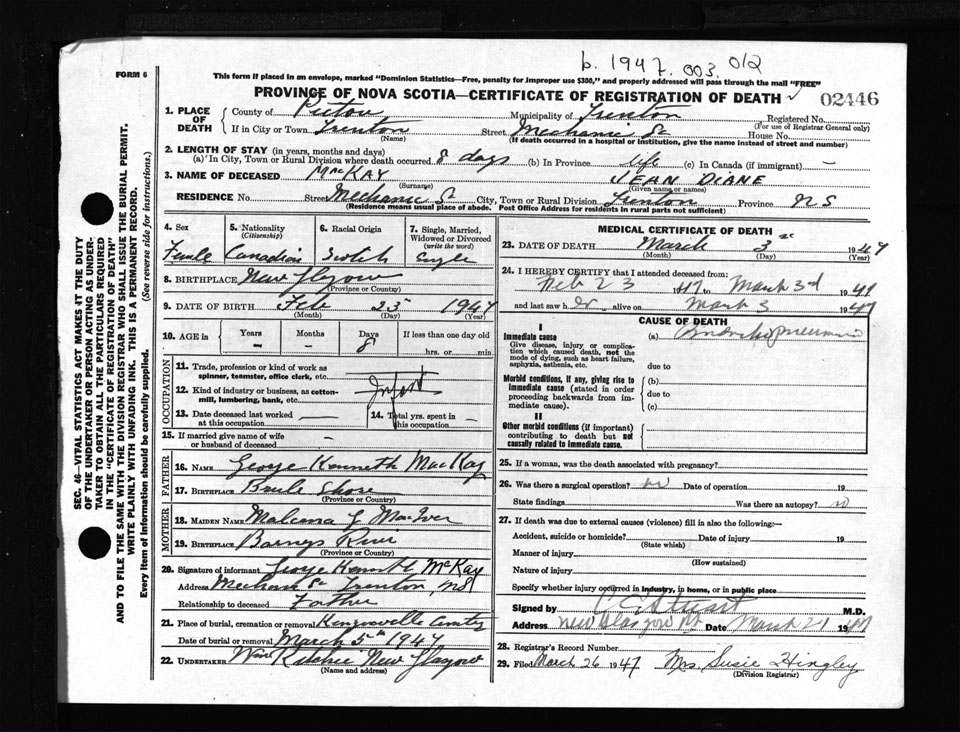 b. 1947. 003. 012
FORM 6
This form if placed in an envelope, marked "Dominion Statistics—Free, penalty for improper use $300," and properly addressed will pass through the mail "FREE"
PROVINCE OF NOVA SCOTIA—CERTIFICATE OF REGISTRATION OF DEATH ✓ 02446
1. PLACE OF DEATH
County of Pictou Municipality of Trenton Registered No.
(For use of Registrar General only)
If in City or Town Trenton Street Mechanic St House No.
(Name) (If death occurred in a hospital or institution, give the name instead of street and number)
2. LENGTH OF STAY (in years, months and days)
(a) In City, Town or Rural Division where death occurred 8 days (b) In Province life (c) In Canada (if immigrant) —
3. NAME OF DECEASED MacKAY JEAN DIANE
(Surname) (Given name or names)
RESIDENCE No. Street Mechanic St City, Town or Rural Division Trenton Province NS
(Residence means usual place of abode. Post Office Address for residents in rural parts not sufficient)
4. Sex
Female
5. Nationality
(Citizenship)
Canadian
6. Racial Origin
Scotch
7. Single, Married, Widowed or Divorced
(write the word)
Single
8. BIRTHPLACE New Glasgow
(Province or Country)
9. DATE OF BIRTH Feb 23 1947
(Month) (Day) (Year)
10. AGE in Years Months Days If less than one day old
— — 8 hrs. or min.
OCCUPATION
11. Trade, profession or kind of work as spinner, teamster, office clerk, etc.
12. Kind of industry or business, as cotton-mill, lumbering, bank, etc. Infant
13. Date deceased last worked at this occupation —
14. Total yrs. spent in this occupation —
15. If married give name of wife or husband of deceased —
FATHER
16. NAME George Kenneth MacKay
17. BIRTHPLACE Brule Shore
(Province or Country)
MOTHER
18. MAIDEN NAME MacIver
19. BIRTHPLACE Barneys River
(Province or Country)
20. Signature of informant George Kenneth McKay
Address Mechanic St Trenton, NS
Relationship to deceased Father
21. Place of burial, cremation or removal
Date of burial or removal March 5th 1947
22. UNDERTAKER Wm Ritchie New Glasgow
(Name and address)
MEDICAL CERTIFICATE OF DEATH
23. DATE OF DEATH March 3 1947
(Month) (Day) (Year)
24. I HEREBY CERTIFY that I attended deceased from:
Feb 23 1947 to March 3rd 1947
and last saw her alive on March 3 1947
CAUSE OF DEATH
I
Immediate cause
Give disease, injury or complication which caused death, not the mode of dying, such as heart failure, asphyxia, asthenia, etc.
(a) Bronchopneumonia
due to
Morbid conditions, if any, giving rise to immediate cause (stated in order proceeding backwards from immediate cause).
(b)
due to
(c)
II
Other morbid conditions (if important) contributing to death but not causally related to immediate cause.
25. If a woman, was the death associated with pregnancy?
26. Was there a surgical operation? no Date of operation 19
State findings Was there an autopsy? no
27. If death was due to external causes (violence) fill in also the following:—
Accident, suicide or homicide? Date of injury 19
(State which)
Manner of injury
(How sustained)
Nature of injury
Specify whether injury occurred in industry, in home, or in public place
Signed by Stuart M.D.
Address New Glasgow Date March 21 1947
28. Registrar's Record Number
29. Filed March 26 1947 Mrs. Susie Hingley
(Division Registrar)
SEC. 46—VITAL STATISTICS ACT MAKES IT THE DUTY
OF THE UNDERTAKER OR PERSON ACTING AS UNDER-
TAKER TO OBTAIN ALL THE PARTICULARS REQUIRED
IN THE "CERTIFICATE OF REGISTRATION OF DEATH"
AND TO FILE THE SAME WITH THE DIVISION REGISTRAR WHO SHALL ISSUE THE BURIAL PERMIT.
WRITE PLAINLY WITH UNFADING INK. THIS IS A PERMANENT RECORD.
Every item of information should be carefully supplied. (See reverse side for instructions.)